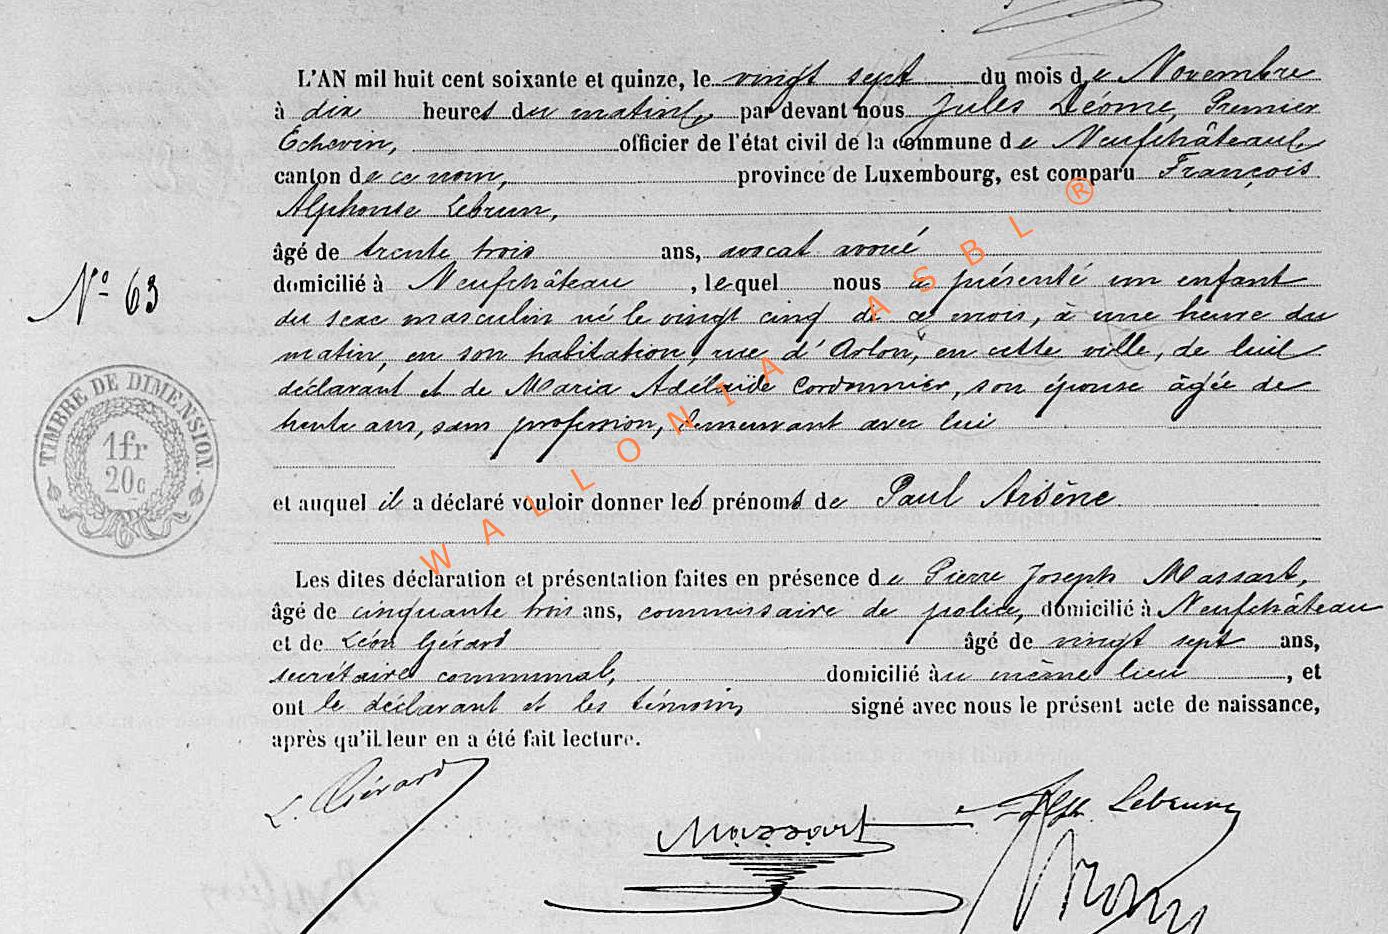 L'AN mil huit cent soixante et quinze, le vingt sept du mois de Novembre
à dix heures du matin, par devant nous Jules Déome, Premier
Echevin, officier de l'état civil de la commune de Neufchâteau,
canton de ce nom, province de Luxembourg, est comparu François
Alphonse Lebrun,
âgé de trente trois ans, avocat avoué
N° 63
domicilié à Neufchâteau, lequel nous a présenté un enfant
du sexe masculin né le vingt cinq de ce mois, à une heure du
matin, en son habitation, rue d'Arlon, en cette ville, de lui
déclarant et de Maria Adélaïde Cordonnier, son épouse âgée de
trente ans, sans profession, demeurant avec lui
TIMBRE DE DIMENSION
1 fr
20 c
et auquel il a déclaré vouloir donner les prénoms de Paul Arsène.
Les dites déclaration et présentation faites en présence de Pierre Joseph Massart,
âgé de cinquante trois ans, commissaire de police, domicilié à Neufchâteau
et de Léon Gérard âgé de vingt sept ans,
secrétaire communal, domicilié au même lieu, et
ont le déclarant et les témoins signé avec nous le présent acte de naissance,
après qu'il leur en a été fait lecture.
L. Gérard Massart Alph. Lebrun
WALLONIA ASBL ®